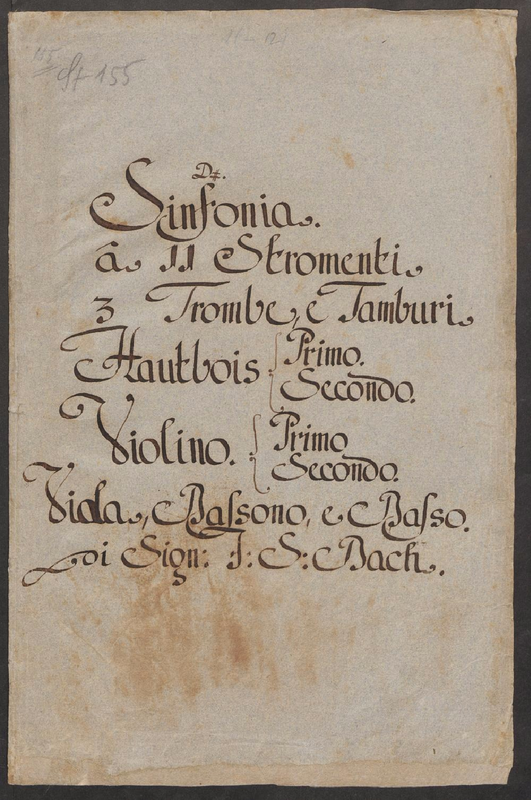 155
St 155
D♯.
Sinfonia.
â 11 Stromenti.
3 Trombe, e Tamburi.
Hautbois { Primo.
Secondo.
Violino. { Primo
Secondo.
Viola, Baſsono, e Baſso.
di Sign: J: S: Bach.